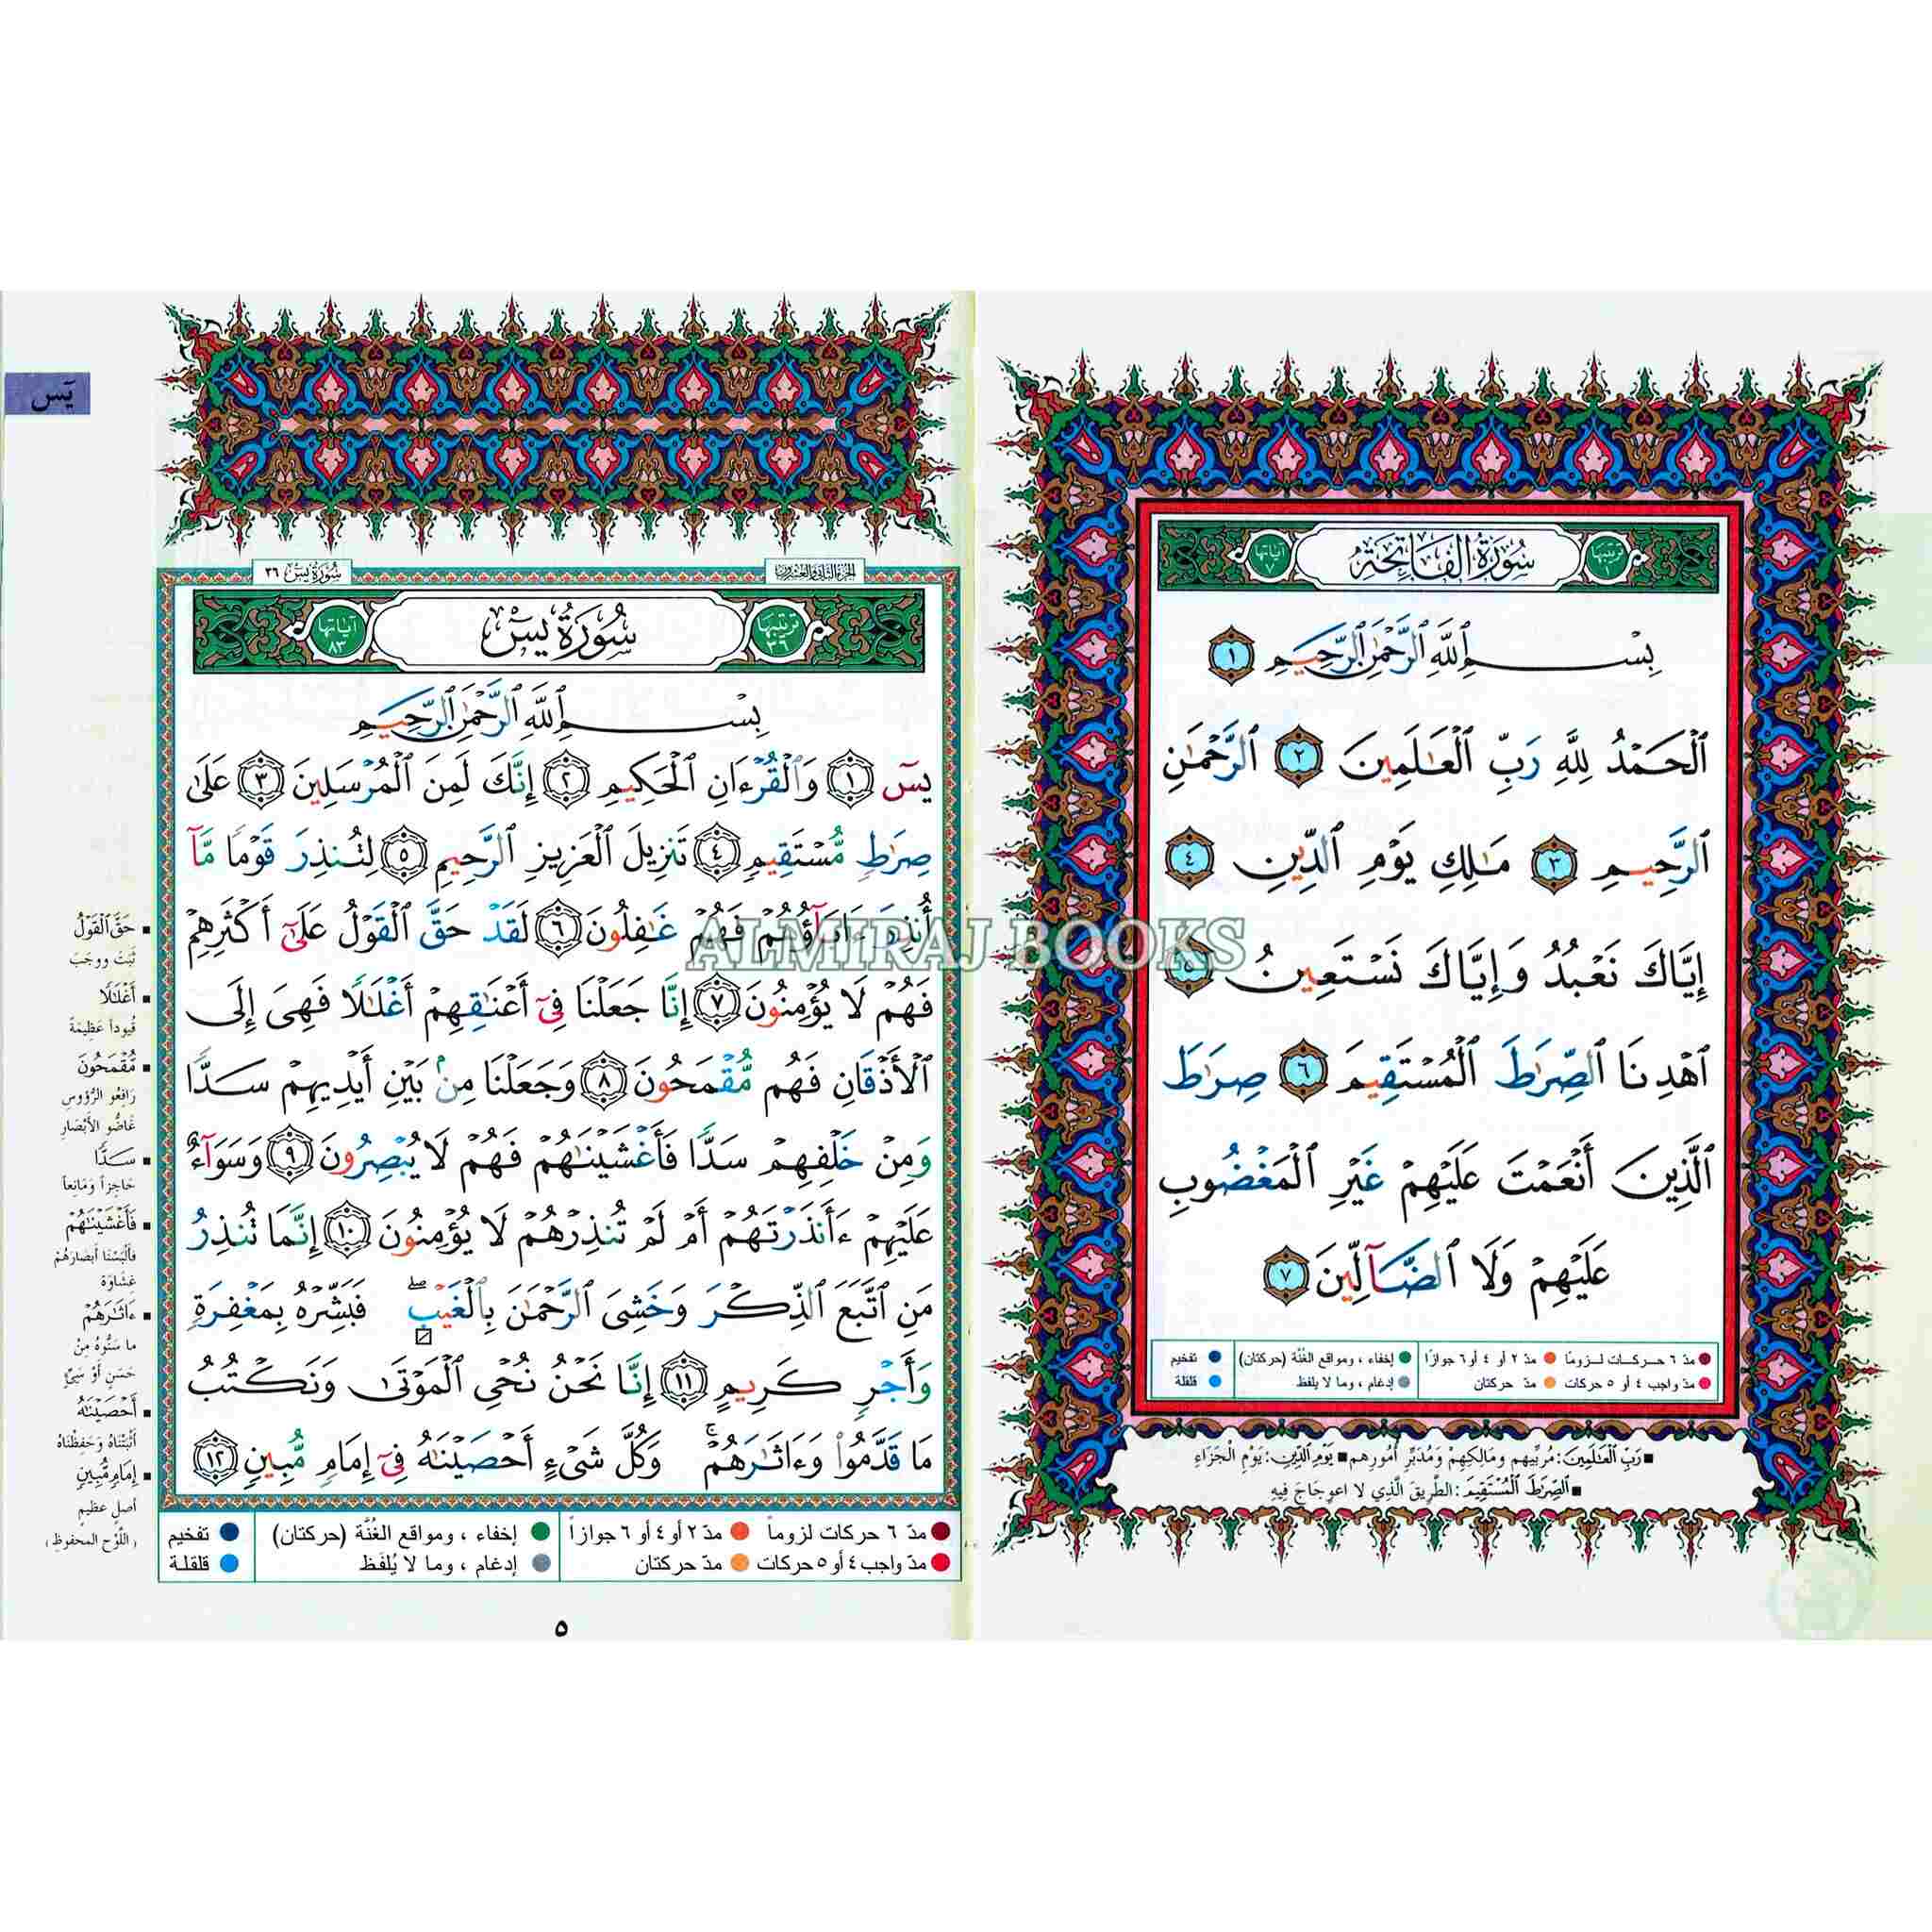 سُورَةُ الفَاتِحَةِ
ترتيبها ١
آياتها ٧
بِسۡمِ ٱللَّهِ ٱلرَّحۡمَٰنِ ٱلرَّحِيمِ ١
ٱلۡحَمۡدُ لِلَّهِ رَبِّ ٱلۡعَٰلَمِينَ ٢ ٱلرَّحۡمَٰنِ
ٱلرَّحِيمِ ٣ مَٰلِكِ يَوۡمِ ٱلدِّينِ ٤
إِيَّاكَ نَعۡبُدُ وَإِيَّاكَ نَسۡتَعِينُ ٥
ٱهۡدِنَا ٱلصِّرَٰطَ ٱلۡمُسۡتَقِيمَ ٦ صِرَٰطَ
ٱلَّذِينَ أَنۡعَمۡتَ عَلَيۡهِمۡ غَيۡرِ ٱلۡمَغۡضُوبِ
عَلَيۡهِمۡ وَلَا ٱلضَّآلِّينَ ٧
مدّ ٦ حركات لزوماً مدّ ٢ أو ٤ أو ٦ جوازاً إخفاء ، ومواقع الغُنَّة (حركتان) تفخيم
مدّ واجب ٤ أو ٥ حركات مدّ حركتان إدغام ، وما لا يلفظ قلقلة
رَبِّ ٱلۡعَٰلَمِينَ: مُرَبِّيهِم وَمَالِكِهِمْ وَمُدَبِّرِ أُمُورِهِم يَوْمِ ٱلدِّينِ: يَوْمِ الْجَزَاءِ
ٱلصِّرَٰطَ ٱلۡمُسۡتَقِيمَ: الطَّرِيقَ الَّذِي لا اعوِجَاجَ فِيهِ
يَس
الجزء الثاني والعشرون
سُورَةُ يسٓ ٣٦
سُورَةُ يسٓ
ترتيبها ٣٦
آياتها ٨٣
بِسۡمِ ٱللَّهِ ٱلرَّحۡمَٰنِ ٱلرَّحِيمِ
يسٓ ١ وَٱلۡقُرۡءَانِ ٱلۡحَكِيمِ ٢ إِنَّكَ لَمِنَ ٱلۡمُرۡسَلِينَ ٣ عَلَىٰ
صِرَٰطٖ مُّسۡتَقِيمٖ ٤ تَنزِيلَ ٱلۡعَزِيزِ ٱلرَّحِيمِ ٥ لِتُنذِرَ قَوۡمٗا مَّآ
أُنذِرَ ءَابَآؤُهُمۡ فَهُمۡ غَٰفِلُونَ ٦ لَقَدۡ حَقَّ ٱلۡقَوۡلُ عَلَىٰٓ أَكۡثَرِهِمۡ
فَهُمۡ لَا يُؤۡمِنُونَ ٧ إِنَّا جَعَلۡنَا فِيٓ أَعۡنَٰقِهِمۡ أَغۡلَٰلٗا فَهِيَ إِلَى
ٱلۡأَذۡقَانِ فَهُم مُّقۡمَحُونَ ٨ وَجَعَلۡنَا مِنۢ بَيۡنِ أَيۡدِيهِمۡ سَدّٗا
وَمِنۡ خَلۡفِهِمۡ سَدّٗا فَأَغۡشَيۡنَٰهُمۡ فَهُمۡ لَا يُبۡصِرُونَ ٩ وَسَوَآءٌ
عَلَيۡهِمۡ ءَأَنذَرۡتَهُمۡ أَمۡ لَمۡ تُنذِرۡهُمۡ لَا يُؤۡمِنُونَ ١٠ إِنَّمَا تُنذِرُ
مَنِ ٱتَّبَعَ ٱلذِّكۡرَ وَخَشِيَ ٱلرَّحۡمَٰنَ بِٱلۡغَيۡبِۖ فَبَشِّرۡهُ بِمَغۡفِرَةٖ
وَأَجۡرٖ كَرِيمٍ ١١ إِنَّا نَحۡنُ نُحۡيِ ٱلۡمَوۡتَىٰ وَنَكۡتُبُ
مَا قَدَّمُواْ وَءَاثَٰرَهُمۡۚ وَكُلَّ شَيۡءٍ أَحۡصَيۡنَٰهُ فِيٓ إِمَامٖ مُّبِينٖ ١٢
حَقَّ ٱلۡقَوۡلُ
ثَبَتَ ووجَبَ
أَغۡلَٰلٗا
قُيوداً عَظِيمَةً
مُّقۡمَحُونَ
رَافِعُو الرُّؤوسِ
غَاضُّو الأَبْصَارِ
سَدّٗا
حَاجِزاً وَمَانِعاً
فَأَغۡشَيۡنَٰهُمۡ
فألبَسْنَا أَبصَارَهُمْ
غِشَاوَة
ءَاثَٰرَهُمۡ
ما سَنُّوهُ مِنْ
حَسَنٍ أَوْ سَيِّئٍ
أَحۡصَيۡنَٰهُ
أَثْبَتْنَاهُ وَحَفِظْنَاهُ
إِمَامٖ مُّبِينٖ
أصلٍ عظيمٍ
(اللَّوْح المحفوظ)
مدّ ٦ حركات لزوماً مدّ ٢ أو ٤ أو ٦ جوازاً إخفاء ، ومواقع الغُنَّة (حركتان) تفخيم
مدّ واجب ٤ أو ٥ حركات مدّ حركتان إدغام ، وما لا يُلفَظ قلقلة
٥
ALMIRAJ BOOKS